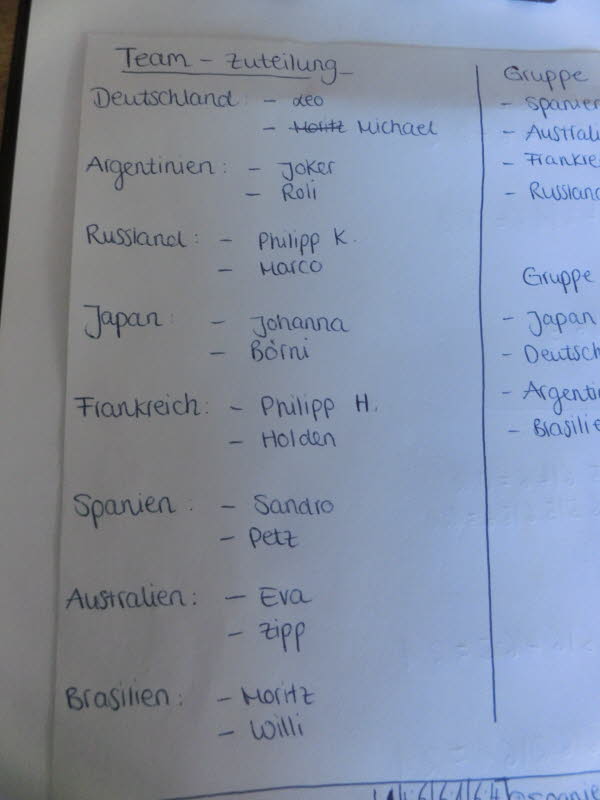 Team - Zuteilung
Deutschland: - Leo
- Moritz Michael
Argentinien: - Joker
- Roli
Russland: - Philipp K.
- Marco
Japan: - Johanna
- Börni
Frankreich: - Philipp H.
- Holden
Spanien: - Sandro
- Petz
Australien: - Eva
- Zipp
Brasilien: - Moritz
- Willi
Gruppe
- Spanien
- Australi
- Frankre
- Russland
Gruppe
- Japan
- Deutsch
- Argenti
- Brasilie